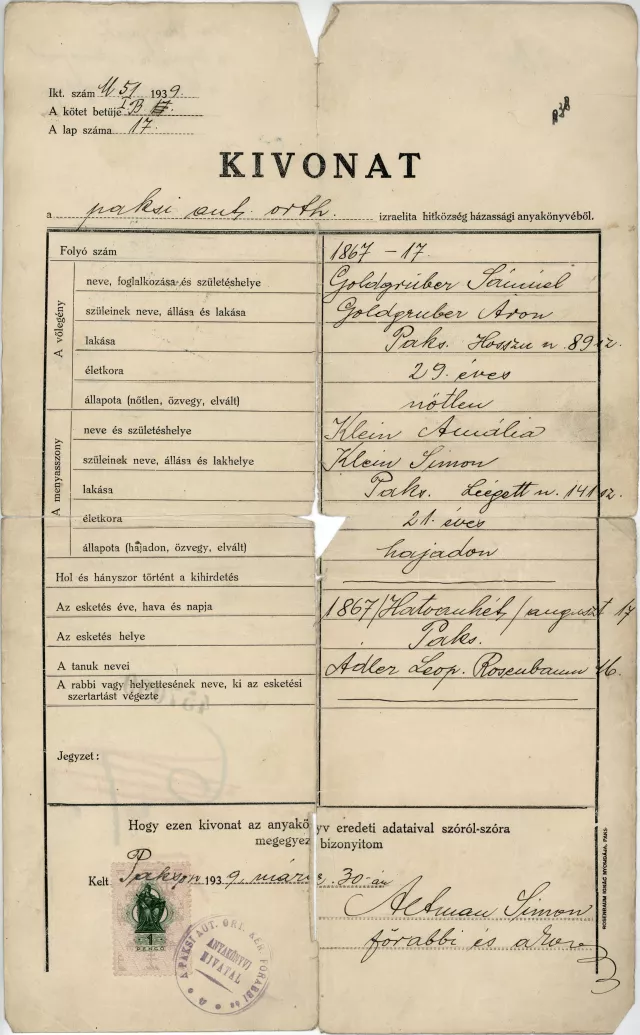 Ikt. szám M 51 1939.
A kötet betüje I. B.
A lap száma 17.
838
KIVONAT
a paksi aut. orth. izraelita hitközség házassági anyakönyvéből.
Folyó szám 1867 - 17.
A vőlegény
neve, foglalkozása és születéshelye Goldgruber Sámuel
szüleinek neve, állása és lakása Goldgruber Áron
lakása Paks. Hosszu u. 89 sz.
életkora 29. éves
állapota (nőtlen, özvegy, elvált) nőtlen
A menyasszony
neve és születéshelye Klein Amália
szüleinek neve, állása és lakhelye Klein Simon
lakása Paks. Leégett u. 141 sz.
életkora 21. éves
állapota (hajadon, özvegy, elvált) hajadon
Hol és hányszor történt a kihirdetés
Az esketés éve, hava és napja 1867/Hatvanhét/ auguszt 17
Az esketés helye Paks.
A tanuk nevei Adler Leop. Rosenbaum M.
A rabbi vagy helyettesének neve, ki az esketési
szertartást végezte
Jegyzet:
Hogy ezen kivonat az anyakönyv eredeti adataival szóról-szóra
megegyez bizonyitom
Kelt Pakson 1939. márc. 30-án
Altman Simon
főrabbi és
1
PENGŐ
A PAKSI AUT. ORT. IZR. FŐRABBI
ANYAKÖNYVI
HIVATAL
ROSENBAUM IGNÁC NYOMDÁJA, PAKS